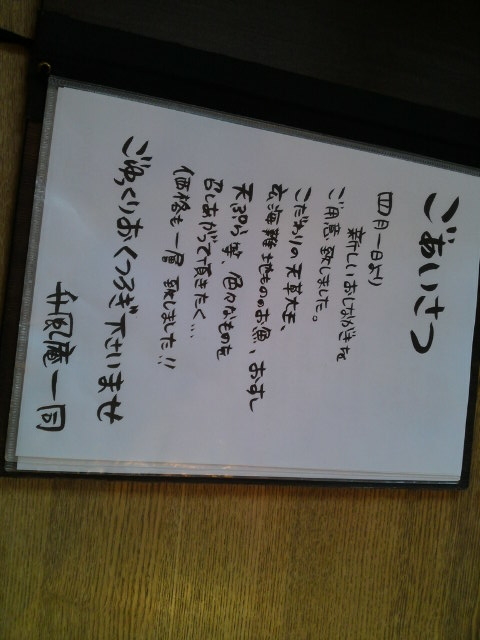 ごあいさつ
四月一日より
新しいおしながきを
ご用意致しました。
こだわりの天草大王、
有明海産地もののお魚、おすし
天ぷら等、色々なものを
召しあがって頂きたく…
価格も一層致しました!!
ごゆっくりおくつろぎ下さいませ
庵一同